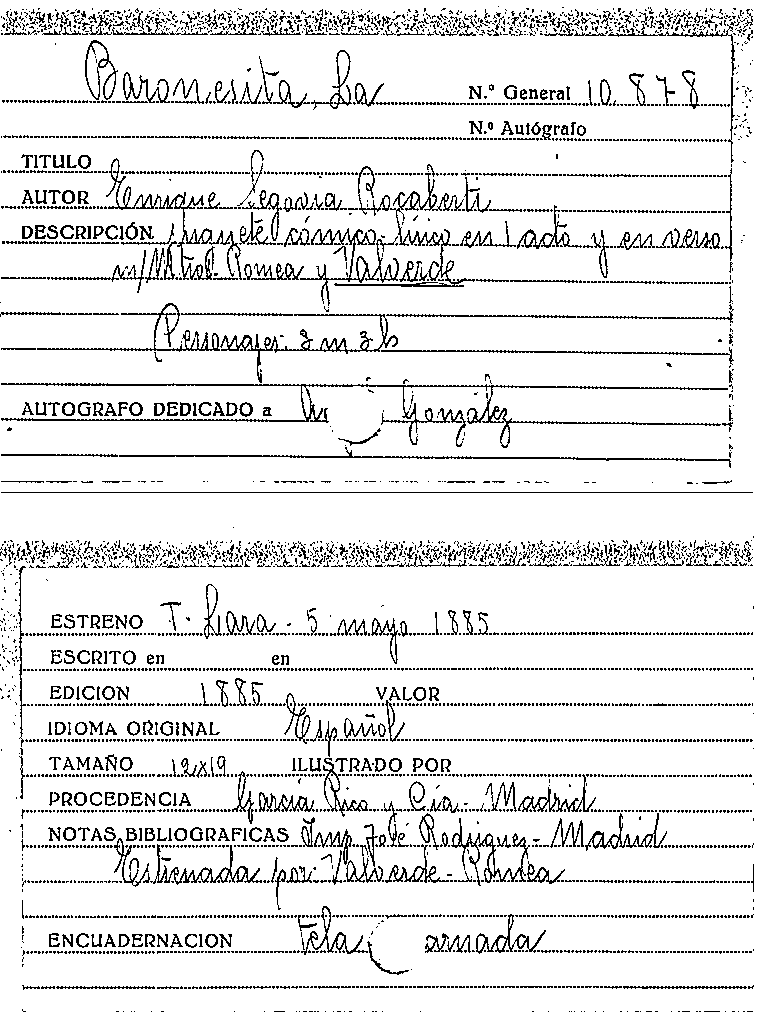 Baronesita, La
N.º General 10.878
N.º Autógrafo
TITULO
AUTOR Enrique Segovia Rocaberti
DESCRIPCIÓN Juguete cómico-lírico en 1 acto y en verso
Romea y Valverde
Personajes: 3 m 3 h
AUTOGRAFO DEDICADO a González
ESTRENO T. Lara - 5 mayo 1885
ESCRITO en en
EDICION 1885 VALOR
IDIOMA ORIGINAL Español
TAMAÑO 12x19 ILUSTRADO POR
PROCEDENCIA García Rico y Cía - Madrid
NOTAS BIBLIOGRAFICAS Imp. José Rodriguez - Madrid
Estrenada por: Valverde - Romea
ENCUADERNACION tela arnada